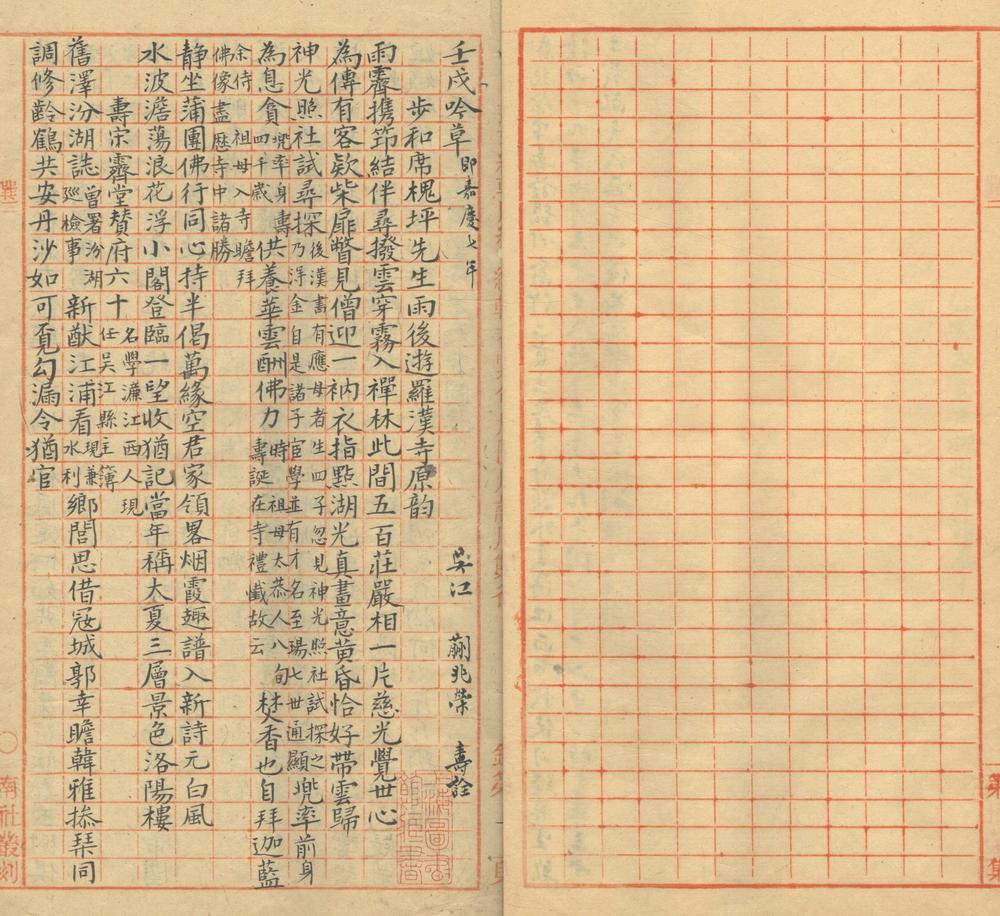 壬戌吟草 即嘉慶七年 吳江 蒯兆榮 壽詮
步和席槐坪先生雨後遊羅漢寺原韵
雨霽携筇結伴尋撥雲穿霧入禪林此間五百莊嚴相一片慈光覺世心
為傳有客欵柴扉瞥見僧迎一衲衣指點湖光真畫意黃昏恰好帶雲歸
神光照社試尋探 後漢書有應母者生四子忽見神光照社試探之乃浮金自是諸子宦學並有才名至瑒七世通顯 兜率前身
為息貪 兜率身壽四千歲 供養華雲酬佛力 時祖母太恭人八旬壽誕在寺禮懺故云 焚香也自拜迦藍
余侍祖母入寺瞻拜佛像盡歷寺中諸勝
静坐蒲團佛行同心持半偈萬緣空君家領畧烟霞趣譜入新詩元白風
水波澹蕩浪花浮小閣登臨一望收猶記當年稱大夏三層景色洛陽樓
壽宗霽堂贊府六十 名學濂江西人現任吳江縣主簿
舊澤汾湖誌 曾署汾湖廵檢事 新猷江浦看 現兼水利 鄉閭思借寇城郭幸瞻韓雅撡琹同
調修齡鶴共安丹沙如可覔勾漏令猶官
南社叢刻
第
集